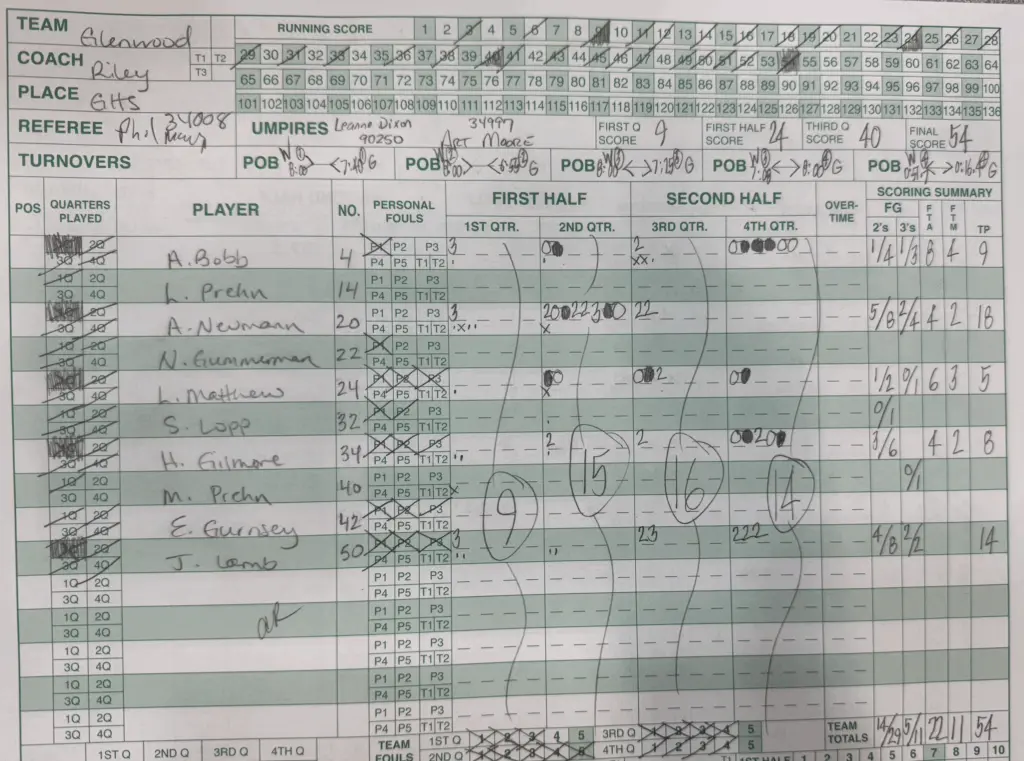 TEAM Glenwood RUNNING SCORE 1 2 3 4 5 6 7 8 9 10 11 12 13 14 15 16 17 18 19 20 21 22 23 24 25 26 27 28
COACH Riley T1 T2 29 30 31 32 33 34 35 36 37 38 39 40 41 42 43 44 45 46 47 48 49 50 51 52 53 54 55 56 57 58 59 60 61 62 63 64
T3 65 66 67 68 69 70 71 72 73 74 75 76 77 78 79 80 81 82 83 84 85 86 87 88 89 90 91 92 93 94 95 96 97 98 99 100
PLACE GHS 101 102 103 104 105 106 107 108 109 110 111 112 113 114 115 116 117 118 119 120 121 122 123 124 125 126 127 128 129 130 131 132 133 134 135 136
REFEREE Phil 34008 UMPIRES Leanne Dixon 90250 34997 Art Moore FIRST Q SCORE 9 FIRST HALF SCORE 24 THIRD Q SCORE 40 FINAL SCORE 54
TURNOVERS POB W 8:00 G POB W 8:00 G POB W 8:00 G POB W G POB W G
POS QUARTERS PLAYED PLAYER NO. PERSONAL FOULS FIRST HALF SECOND HALF OVER-TIME SCORING SUMMARY
1ST QTR. 2ND QTR. 3RD QTR. 4TH QTR. FG 2's 3's FTA FTM TP
2Q P1 P2 P3 3 2
3Q 4Q A. Bobb 4 P4 P5 T1 T2 1/4 1/3 8 4 9
1Q 2Q P1 P2 P3
3Q 4Q L. Prehn 14 P4 P5 T1 T2
2Q P1 P2 P3 3 22
3Q 4Q A. Neumann 20 P4 P5 T1 T2 5/8 2/4 4 2 18
1Q 2Q P1 P2 P3
3Q 4Q N. Gummerman 22 P4 P5 T1 T2
2Q P1 P2 P3
3Q 4Q L. Matthew 24 P4 P5 T1 T2 1/2 0/1 6 3 5
1Q 2Q P1 P2 P3
3Q 4Q S. Lopp 32 P4 P5 T1 T2 0/1
2Q P1 P2 P3 2 2
3Q 4Q H. Gilmore 34 P4 P5 T1 T2 3/6 4 2 8
1Q 2Q P1 P2 P3 15 16 14
3Q 4Q M. Prehn 40 P4 P5 T1 T2 0/1
1Q 2Q P1 P2 P3 9
3Q 4Q E. Gurnsey 42 P4 P5 T1 T2
2Q P1 P2 P3 3 23 222
3Q 4Q J. Lamb 50 P4 P5 T1 T2 4/8 2/2 14
1Q 2Q P1 P2 P3
3Q 4Q P4 P5 T1 T2
1Q 2Q P1 P2 P3
3Q 4Q P4 P5 T1 T2
1Q 2Q P1 P2 P3
3Q 4Q P4 P5 T1 T2
1Q 2Q P1 P2 P3
3Q 4Q P4 P5 T1 T2
1Q 2Q P1 P2 P3
3Q 4Q P4 P5 T1 T2
TEAM FOULS 1ST Q 1 2 3 4 5 3RD Q 1 2 3 4 5 TEAM TOTALS 14/29 5/11 22 11 54
1ST Q 2ND Q 3RD Q 4TH Q 2ND Q 1 2 3 4 5 4TH Q 1 2 3 4 5
1ST HALF 1 2 3 4 5 6 7 8 9 10